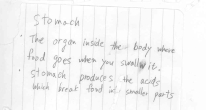 Stomach
• The organ inside the body where
food goes when you swallow it.
• Stomach produces the acids
which break food in smaller parts